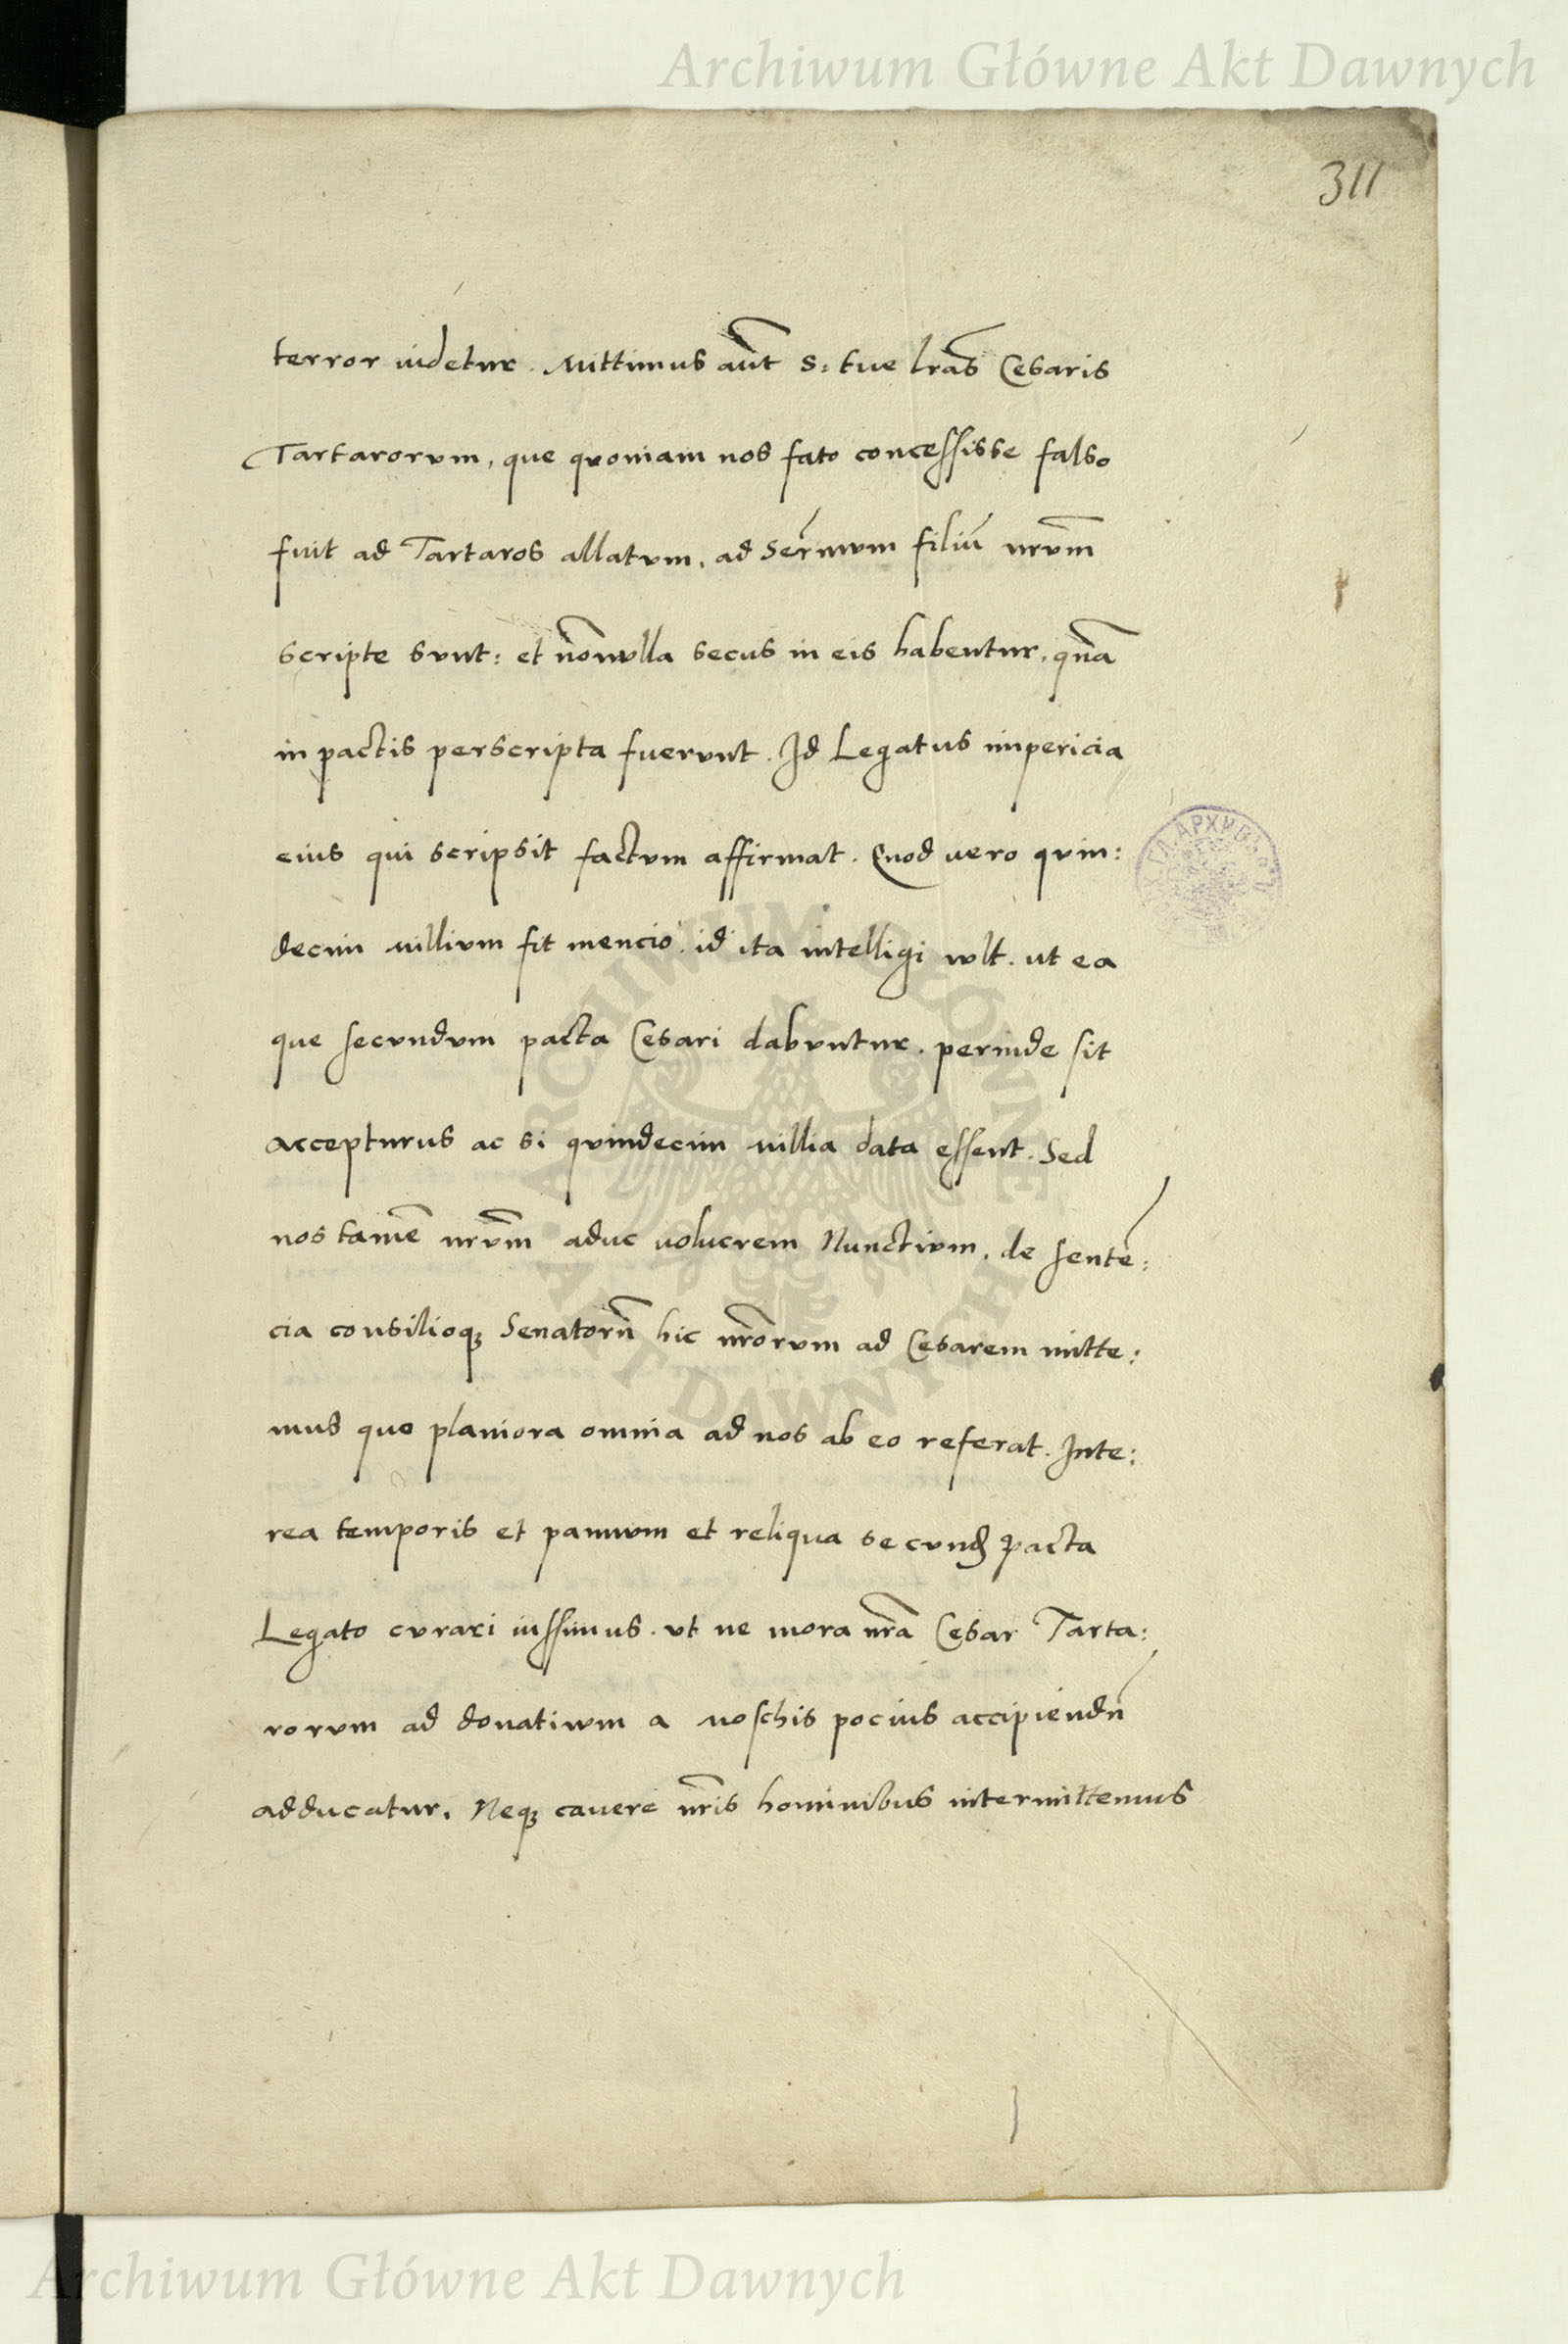 Archiwum Główne Akt Dawnych
311
terror uidetur. Mittimus aūt S: tue lrās Cesaris
Tartarorum, que quoniam nos fato concessisse falso
fuit ad Tartaros allatum, ad Sermum filiū nrūm
scripte sunt: et nōnulla secus in eis habentur, quā
in pactis perscripta fuerunt. Id Legatus impericia
eius qui scripsit factum affirmat. Quod vero quin:
decim millium fit mencio. id ita intelligi wlt. ut ea
que secundum pacta Cesari dabuntur. perinde sit
accepturus ac si quindecim millia data essent. Sed
nos tamē nrūm aduc uolucrem Nunctium, de senten:
cia consilioq; Senatorū hic nrōrum ad Cesarem mitte:
mus quo planiora omnia ad nos ab eo referat. Inte:
rea temporis et pannum et reliqua secund pacta
Legato curari iussimus. ut ne mora nrā Cesar Tarta:
rorum ad donatiuum a Moschis pocius accipiendū
adducatur. Neq; cauere nrīs hominibus intermittemus
АРХИВ
ARCHIWUM GŁÓWNE AKT DAWNYCH
Archiwum Główne Akt Dawnych